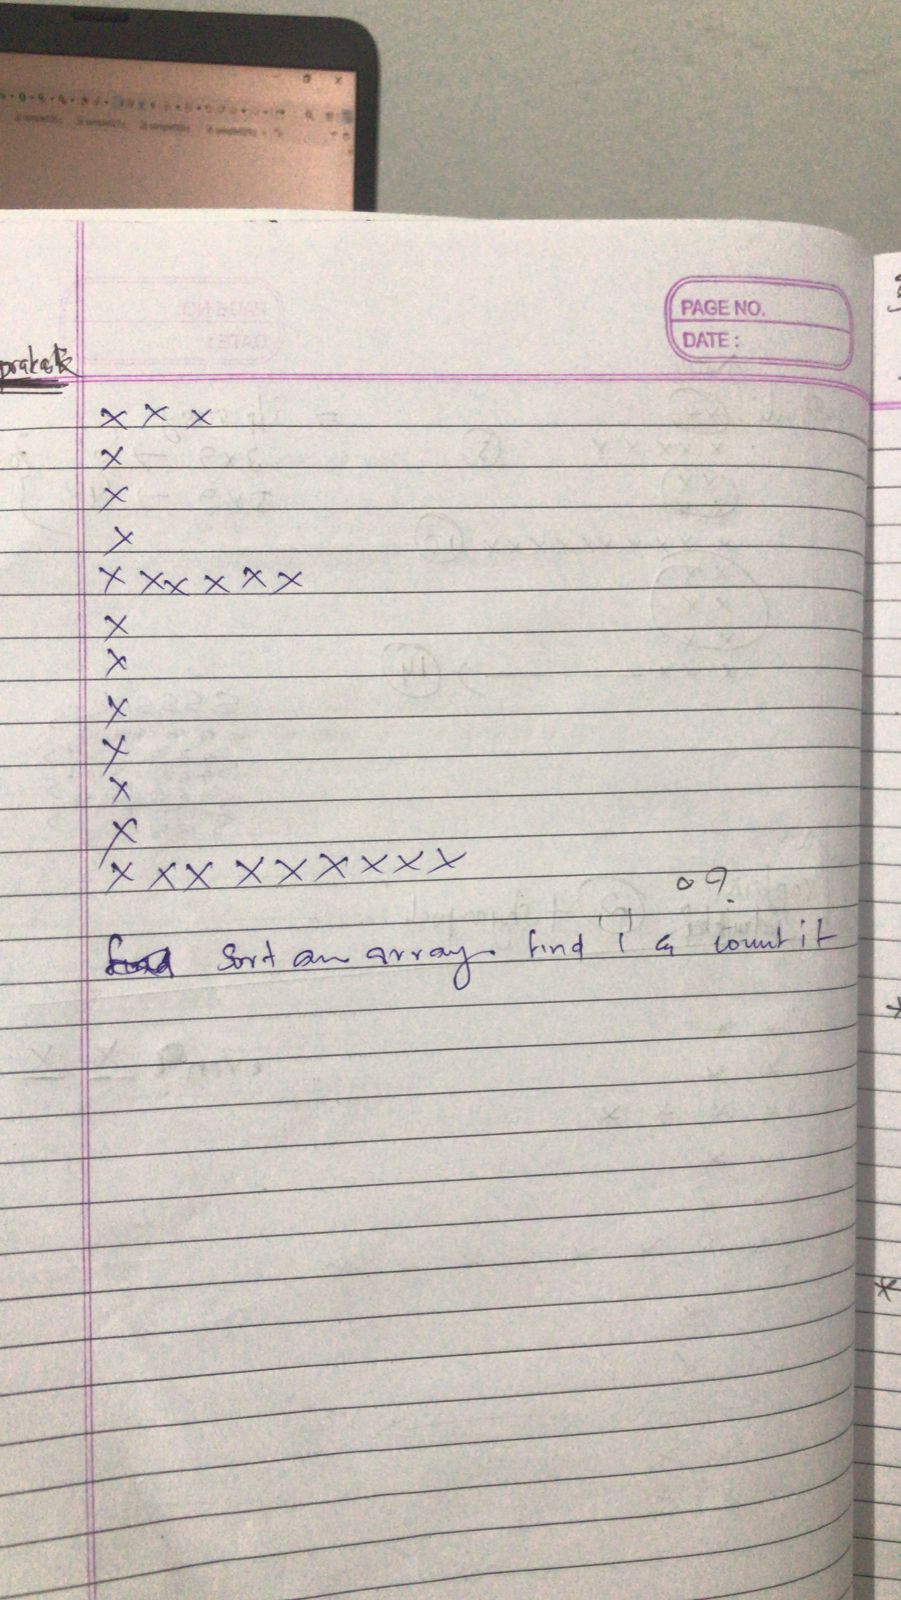 PAGE NO.
DATE :
prakash
x x x
x
x
x
x x x x x x
x
x
x
x
x
x
x x x x x x x x x
09.
Sort an array. find 1 & count it